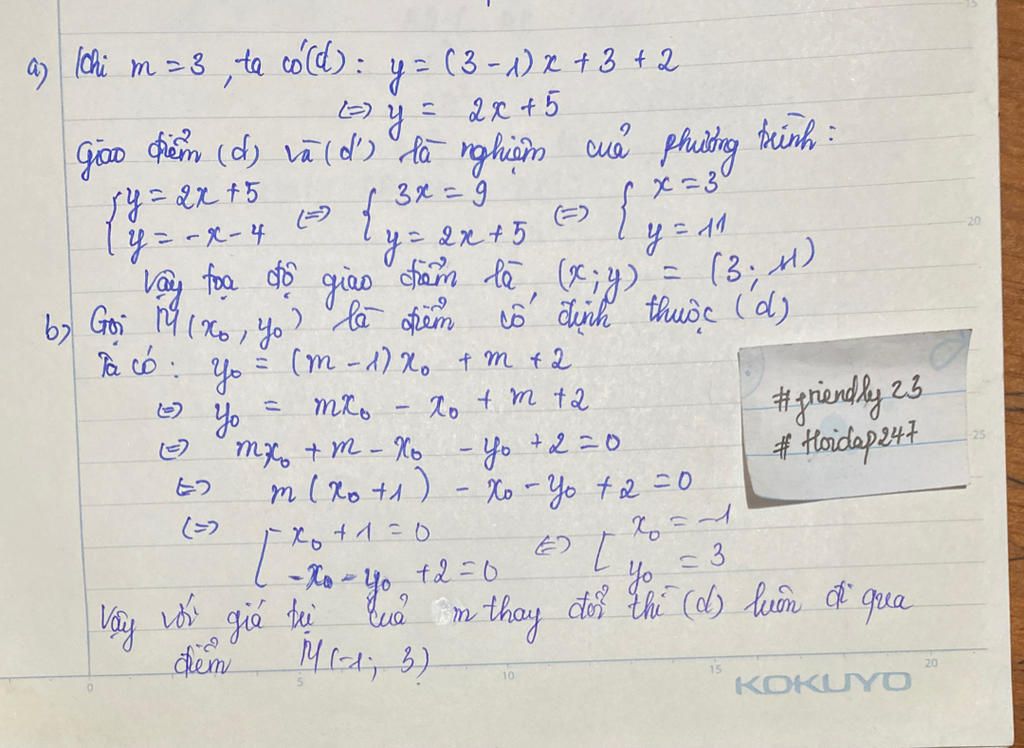 a) Khi m = 3, ta có (d): y = (3 - 1)x + 3 + 2
⇔ y = 2x + 5
Giao điểm (d) và (d') là nghiệm của phương trình:
{ y = 2x + 5 ⇔ { 3x = 9 ⇔ { x = 3
y = -x - 4 y = 2x + 5 y = 11
Vậy tọa độ giao điểm là (x; y) = (3; 11)
b) Gọi M(x₀, y₀) là điểm cố định thuộc (d)
Ta có: y₀ = (m - 1)x₀ + m + 2
⇔ y₀ = mx₀ - x₀ + m + 2
⇔ mx₀ + m - x₀ - y₀ + 2 = 0
⇔ m(x₀ + 1) - x₀ - y₀ + 2 = 0
⇔ [ x₀ + 1 = 0 ⇔ [ x₀ = -1
-x₀ - y₀ + 2 = 0 y₀ = 3
Vậy với giá trị của m thay đổi thì (d) luôn đi qua
điểm M(-1; 3)
#friendly23
#Hoidap247
15
20
25
0 5 10 15 20
KOKUYO